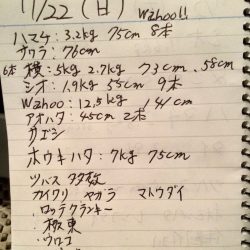 11/22 (日) Wahoo!!
ハマチ: 3.2kg 75cm 8本
サワラ: 76cm
6本 横: 5kg 2.7kg 73cm、58cm
シオ: 1.9kg 55cm 9本
Wahoo: 12.5kg 141cm
アオハタ: 45cm 2本
カエシ
ホウキハタ: 7kg 75cm
ツバス 多数
カイワリ ヤガラ マトウダイ
・ロッテクランキー
・極東
・ウロコ